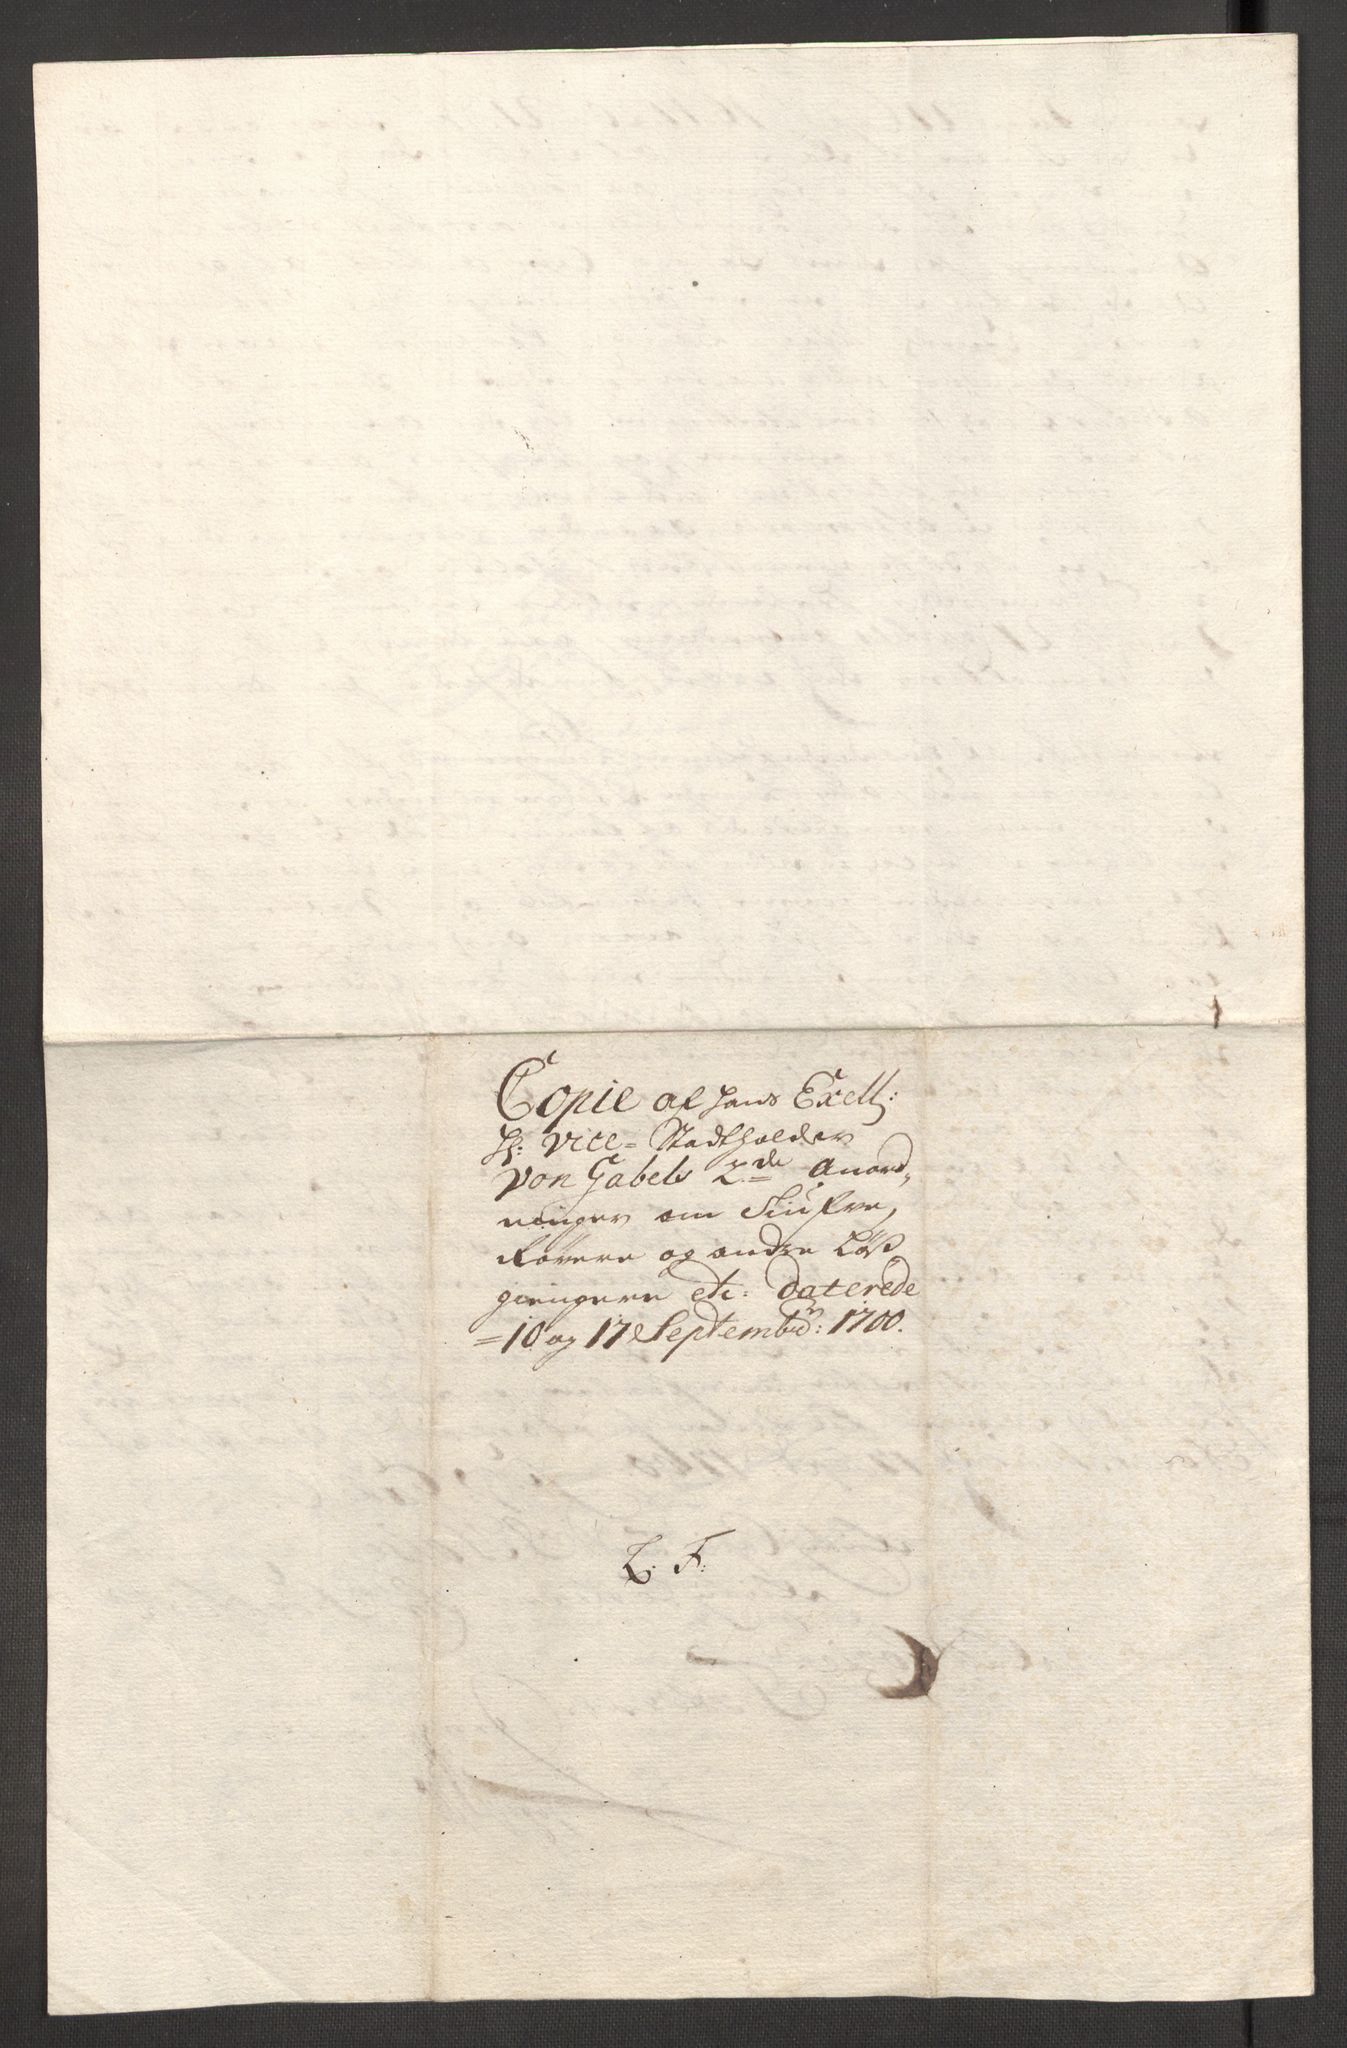 Copie af hans Excell:
H: Vice-Stadtholder
Von Gabels 2de Anord,
ninger om Tiufve,
Røvere og andre Løs
giengere etc: Daterede
10 og 17 Septembr: 1700.
L: F: